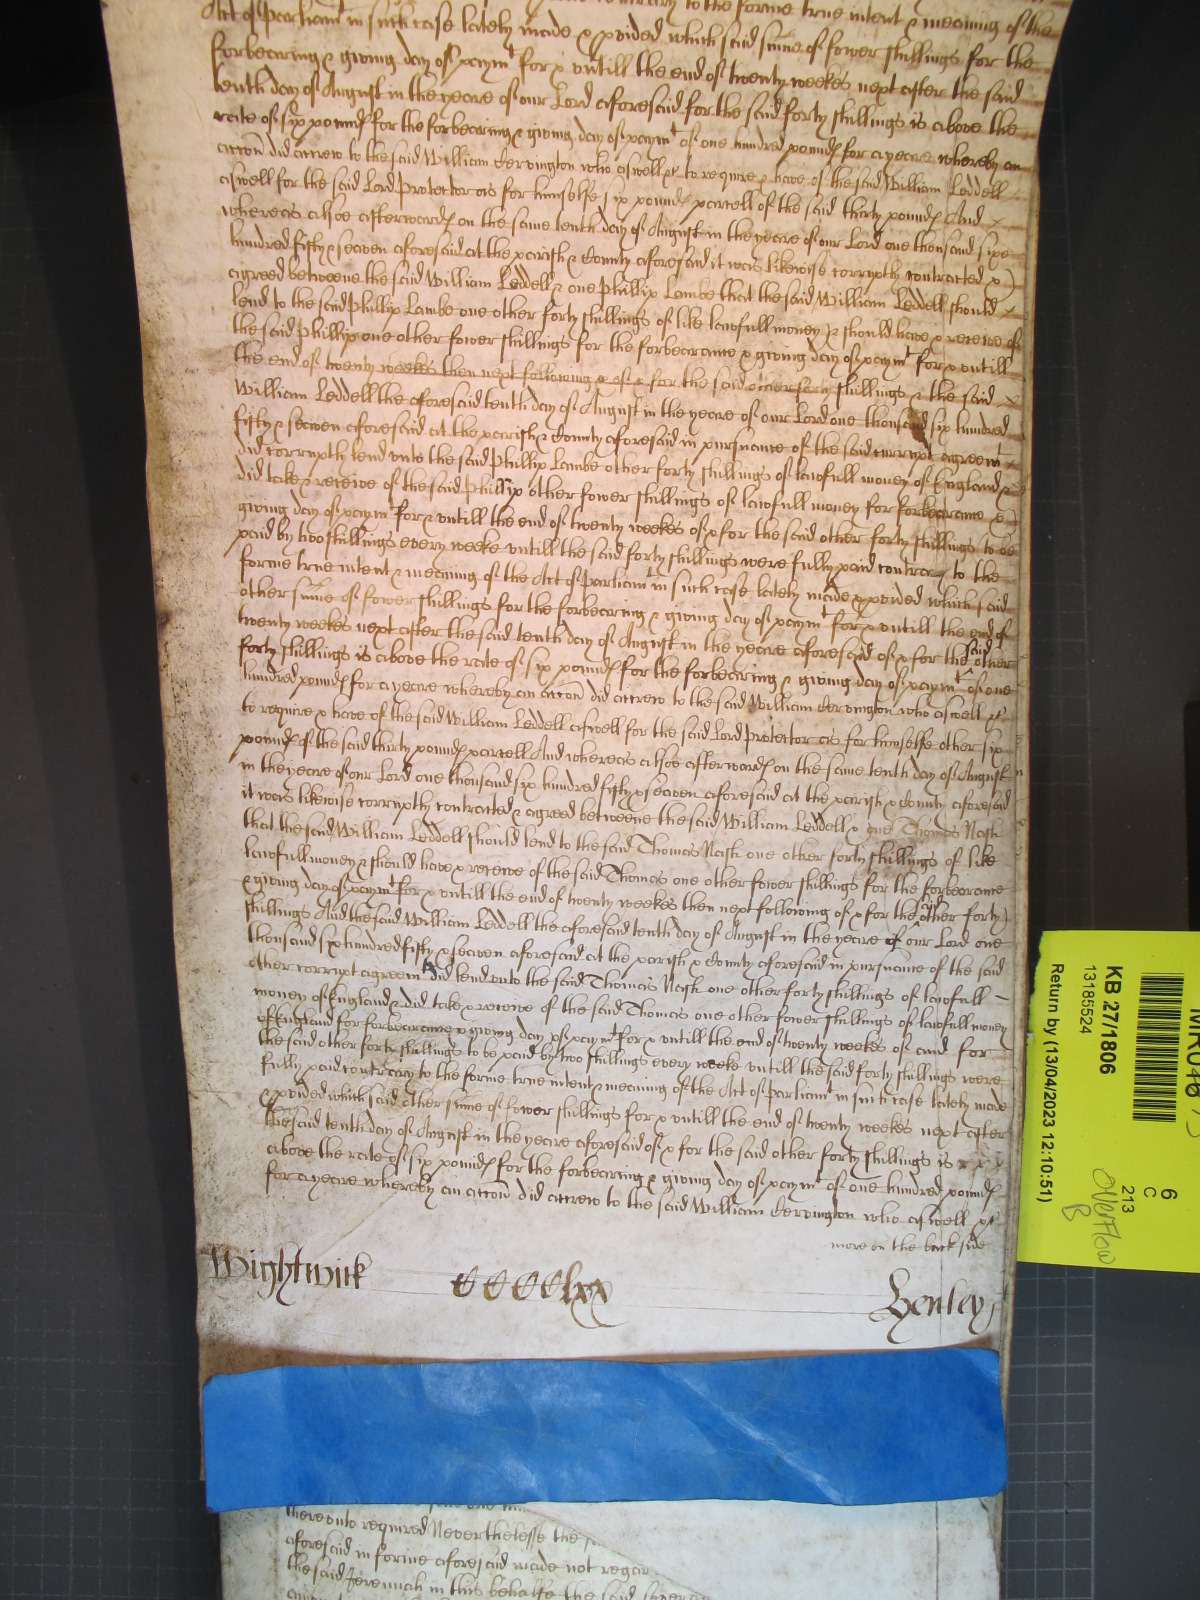 contrary to the forme true intent & meaning of the
Act of Parliamt in such case lately made & pvided which said sume of fower shillings for the
forbearing & giving day of paymt for & untill the end of twenty weekes next after the said
tenth day of August in the yeare of our Lord aforesaid for the said forty shillings is above the
rate of six pounds for the forbearing & giving day of paymt of one hundred pounds for a yeare whereby an
accon did accrew to the said William Dervington who aswell &c to require & have of the said William Leddell
aswell for the said Lord Protector as for himselfe six pounds parcell of the said thirty pounds And
whereas alsoe afterwards on the same tenth day of August in the yeare of our Lord one thousand sixe
hundred fifty & seaven aforesaid at the parish & County aforesaid it was likewise corruptly contracted &
agreed betweene the said William Leddell & one Phillip Lambe that the said William Leddell should
lend to the said Phillip Lambe one other forty shillings of like lawfull money & should have & receive of
the said Phillip one other fower shillings for the forbearance & giving day of paymt for & untill
the end of twenty weekes then next following & of & for the said other forty shillings & the said
William Leddell the aforesaid tenth day of August in the yeare of our Lord one thousand six hundred
fifty & seaven aforesaid at the parish & County aforesaid in pursuance of the said currupt agreemt
did corruptly lend unto the said Phillip Lambe other forty shillings of lawfull money of England &
did take & receive of the said Phillip other fower shillings of lawfull money for forbearance &
giving day of paymt for & untill the end of twenty weekes of & for the said other forty shillings to be
paid by two shillings every weeke untill the said forty shillings were fully paid contrary to the
forme true intent & meaning of the Act of Parliamt in such case lately made & pvided which said
other sume of fower shillings for the forbearing & giving day of paymt for & untill the end of
twenty weekes next after the said tenth day of August in the yeare aforesaid of & for the said other
forty shillings is above the rate of six pounds for the forbearing & giving day of paymt of one
hundred pounds for a yeare whereby an accon did accrew to the said William Dervington who aswell &c
to require & have of the said William Leddell aswell for the said Lord Protector as for himselfe other six
pounds of the said thirty pounds parcell And whereas alsoe afterwards on the same tenth day of August
in the yeare of our Lord one thousand six hundred fifty & seaven aforesaid at the parish & County aforesaid
it was likewise corruptly contracted & agreed betweene the said William Leddell & one Thomas Nash
that the said William Leddell should lend to the said Thomas Nash one other forty shillings of like
lawfull money & should have & receive of the said Thomas one other fower shillings for the forbearance
& giving day of paymt for & untill the end of twenty weekes then next following of & for the other forty
shillings And the said William Leddell the aforesaid tenth day of August in the yeare of our Lord one
thousand six hundred fifty & seaven aforesaid at the parish & County aforesaid in pursuance of the said
other corrupt agreemt did lend unto the said Thomas Nash one other forty shillings of lawfull
money of England & did take & receive of the said Thomas one other fower shillings of lawfull money
of England for forbearance & giving day of paymt for & untill the end of twenty weekes of and for
the said other forty shillings to be paid by two shillings every weeke untill the said forty shillings were
fully paid contrary to the forme true intent & meaning of the Act of Parliamt in such case lately made
& pvided which said other sume of fower shillings for & untill the end of twenty weekes next after
the said tenth day of August in the yeare aforesaid of & for the said other forty shillings is
above the rate of six pounds for the forbearing & giving day of paymt of one hundred pounds
for a yeare whereby an accon did accrew to the said William Dervington who aswell &c
more on the back side
Wightwick CCCClxx Henley
thereunto required Neverthelesse the
aforesaid in forme aforesaid made not regar
the said Jeremiah in this behalfe the said
KB 27/1806
13185524
Return by (13/04/2023 12:10:51)
6
C
213
Overflow
B